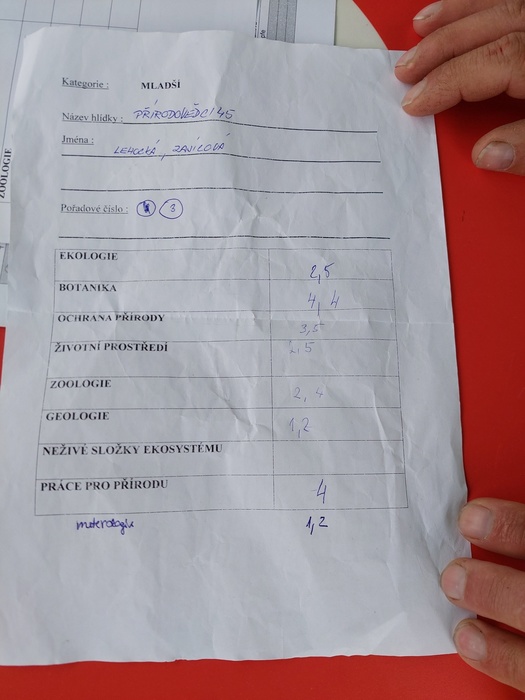 ZOOLOGIE
Kategorie : MLADŠÍ
Název hlídky : PŘÍRODOVĚDCI 45
Jména : LEHOCKÁ, ZAJÍCOVÁ
Pořadové číslo : 3
EKOLOGIE 2,5
BOTANIKA 4,4
OCHRANA PŘÍRODY 3,5
ŽIVOTNÍ PROSTŘEDÍ 2,5
ZOOLOGIE 2,4
GEOLOGIE 1,2
NEŽIVÉ SLOŽKY EKOSYSTÉMU
PRÁCE PRO PŘÍRODU 4
meterologie 1,2